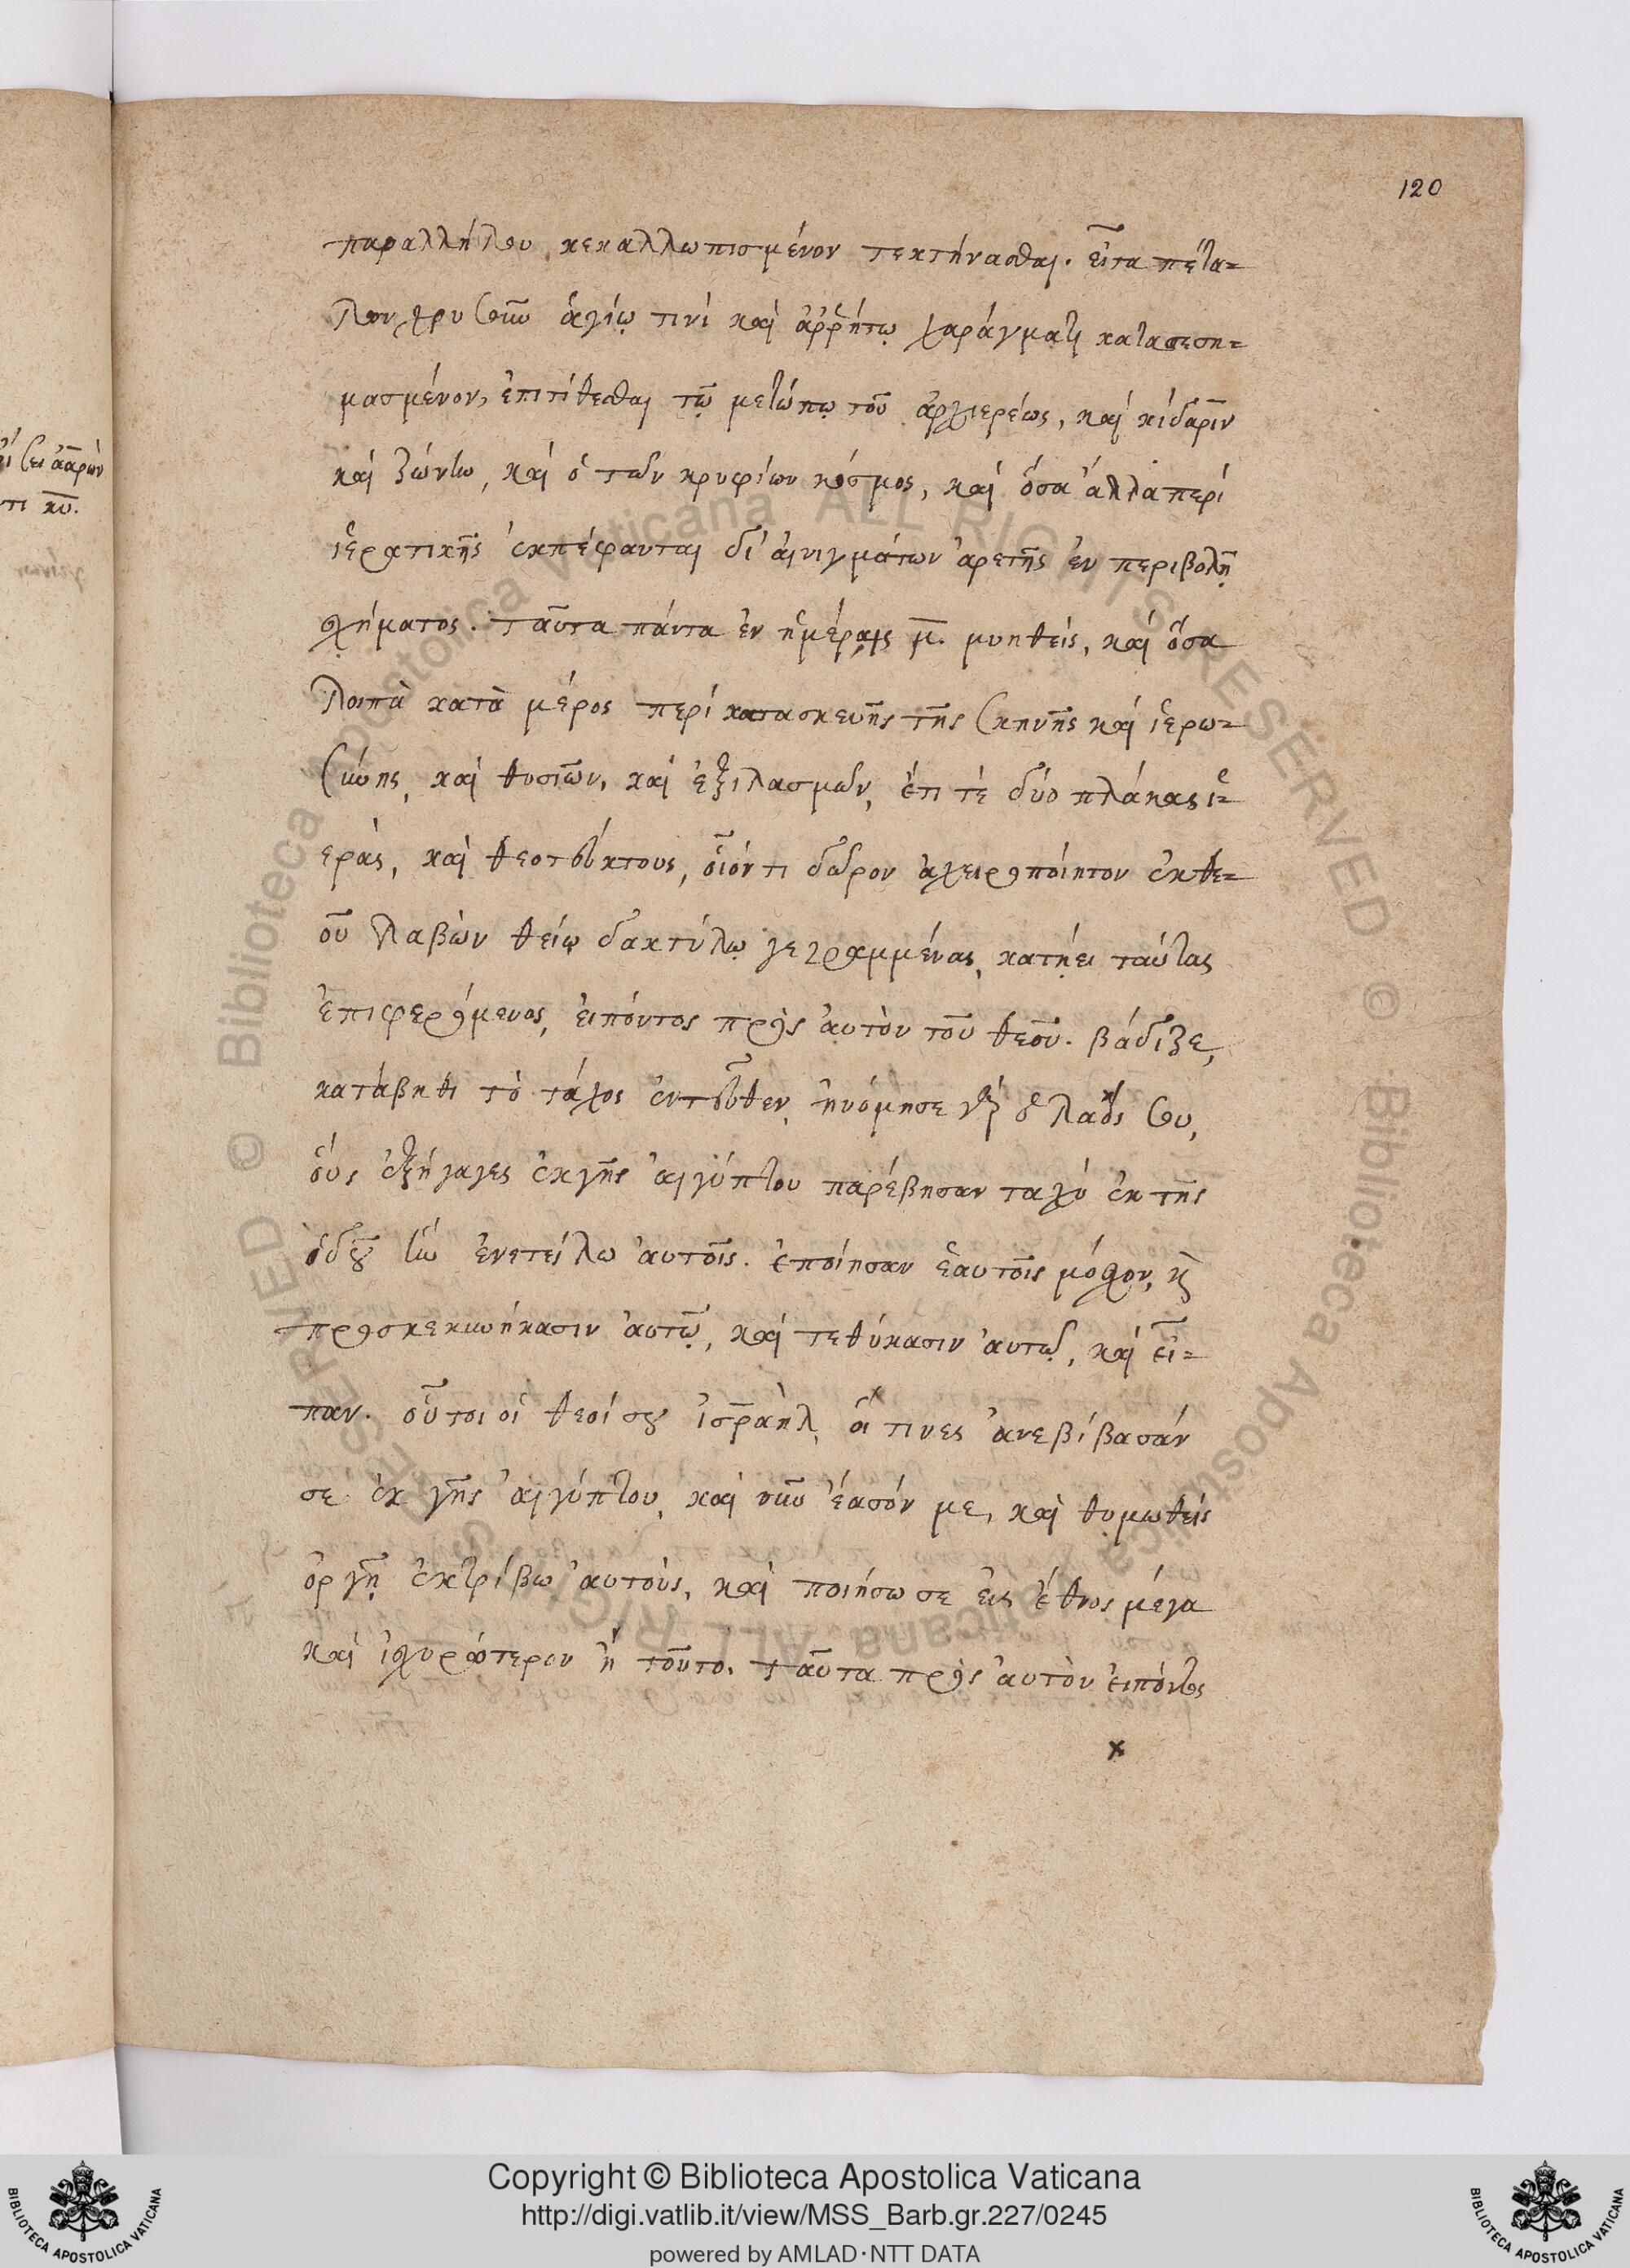 120
παραλλήλου κεκαλλωπισμένον τεκτήνασθαι. εἶτα πέτα=
λον χρυσοῦν ἁγίῳ τινί καὶ ἀῤῥήτῳ χαράγματι κατασεση=
μασμένον, ἐπιτίθεσθαι τῷ μετώπῳ τοῦ ἀρχιερέως, καί κίδαριν
καί ζώνην, καί ὁ τῶν κρυφίων κόσμος, καί ὅσα ἄλλα περί
ἱερατικῆς ἐκπέφανται δι' αἰνιγμάτων ἀρετῆς ἐν περιβολῇ
σχήματος. ταῦτα πάντα ἐν ἡμέραις μ. μυηθείς, καί ὅσα
λοιπὰ κατὰ μέρος περί κατασκευῆς τῆς σκηνῆς καί ἱερω=
σύνης, καὶ θυσιῶν, καὶ ἐξιλασμῶν, ἔτι τέ δύο πλάκας ἱ=
εράς, καὶ θεοτεύκτους, οἷόν τι δῶρον ἀχειροποίητον ἐκ θε=
οῦ λαβὼν θείῳ δακτύλῳ γεγραμμένας, κατῄει ταύτας
ἐπιφερόμενος, εἰπόντος πρὸς αὐτὸν τοῦ θεοῦ. βάδιζε,
κατάβηθι τὸ τάχος ἐντεῦθεν, ἠνόμησε γὰρ ὁ λαός σου,
οὕς ἐξήγαγες ἐκ γῆς αἰγύπτου παρέβησαν ταχύ ἐκ τῆς
ὁδοῦ ἣν ἐνετείλω αὐτοῖς. ἐποίησαν ἑαυτοῖς μόσχον, κ
προσκεκυνήκασιν αὐτῷ, καί τεθύκασιν αὐτῷ, καί εἶ=
παν. οὗτοι οἱ θεοί σου ἰσραὴλ, οἵ τινες ἀνεβίβασάν
σε ἐκ γῆς αἰγύπτου, καὶ νῦν ἔασόν με, καὶ θυμωθείς
ὀργῇ ἐκτρίβω αὐτούς, καὶ ποιήσω σε εἰς ἔθνος μέγα
καί ἰσχυρότερον ἢ τοῦτο. ταῦτα πρὸς αὐτὸν εἰπόντος
Copyright © Biblioteca Apostolica Vaticana
http://digi.vatlib.it/view/MSS_Barb.gr.227/0245
powered by AMLAD·NTT DATA